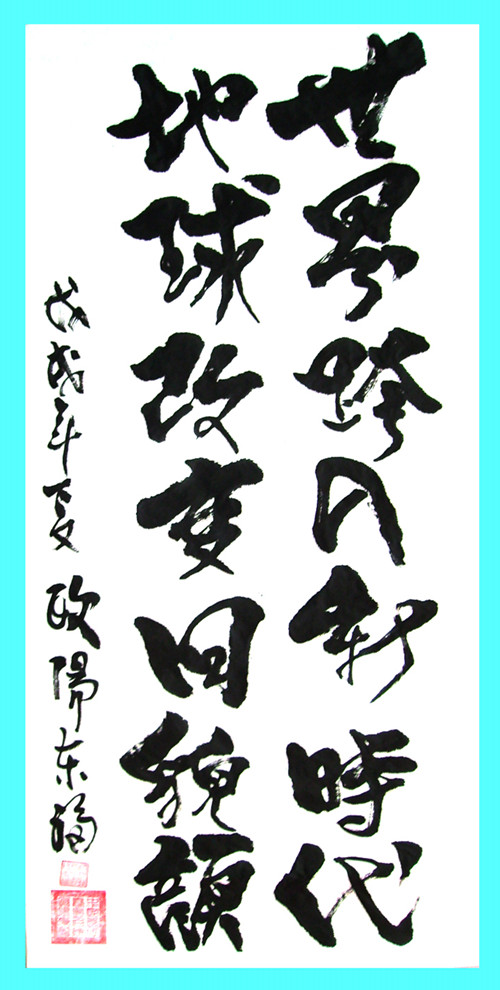 世界跨入新時代
地球改变回貌顔
戊戌年夏 欧陽东福